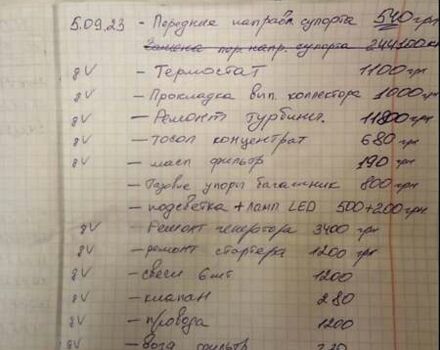 5.09.23 - Передняя направл супорта 540 грн
Замена пер. напр. супорта 244100км
gV - Термостат 1100 грн
gV - Прокладка вып. коллектора 1000 грн
gV - Ремонт турбины. 11800 грн
gV - тосол концентрат 680 грн
gV - масл фильтр 190 грн
- Газовые упоры багажник 800 грн
- подсветка + ламп LED 500+200 грн
gV - Ремонт генератора 3400 грн
gV - ремонт стартера 1200 грн
gV - свечи 6 шт 1200
gV - клапан 280
gV - провода 1200
gV - фильтр